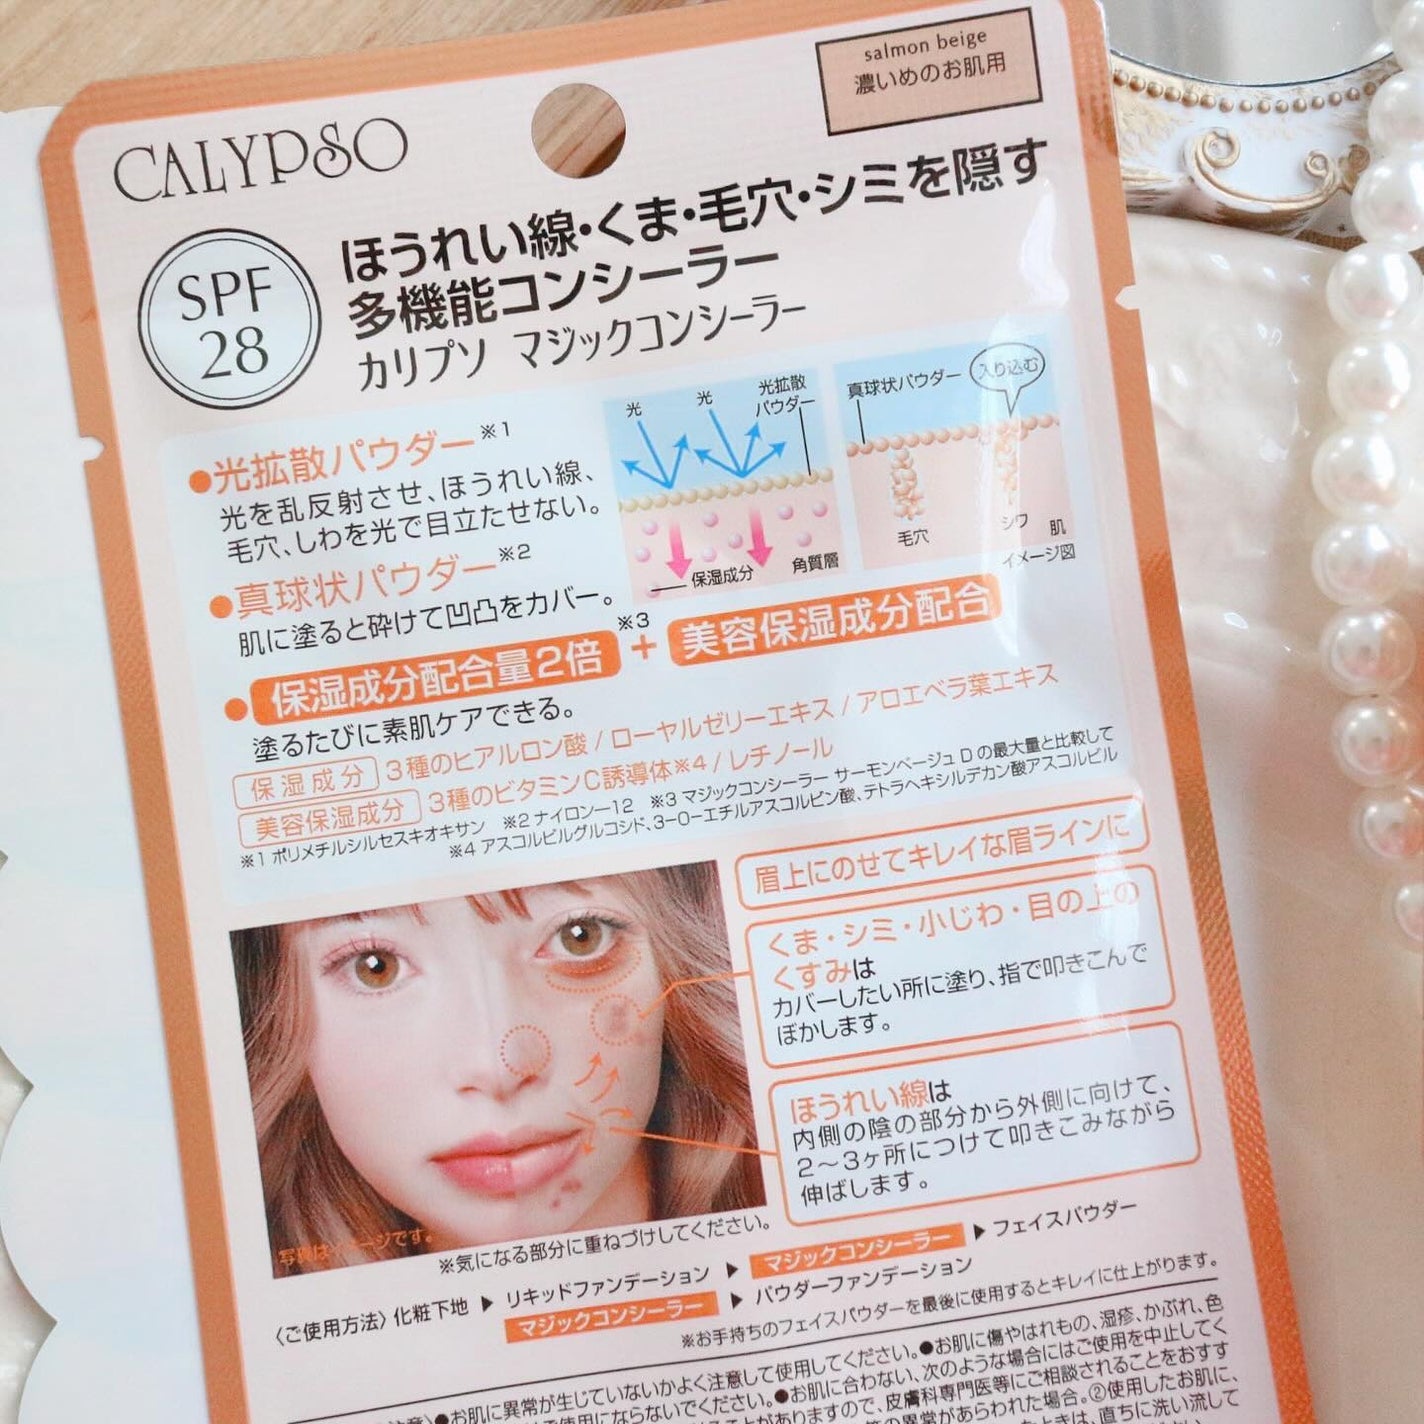 salmon beige
濃いめのお肌用
CALYPSO
SPF
28
ほうれい線・くま・毛穴・シミを隠す
多機能コンシーラー
カリプソ マジックコンシーラー
●光拡散パウダー※1
光を乱反射させ、ほうれい線、
毛穴、しわを光で目立たせない。
●真球状パウダー※2
肌に塗ると砕けて凹凸をカバー。
光 光 光拡散
パウダー
保湿成分 角質層
真球状パウダー 入り込む
毛穴 シワ 肌
イメージ図
●保湿成分配合量2倍※3 + 美容保湿成分配合
塗るたびに素肌ケアできる。
保湿成分 3種のヒアルロン酸 / ローヤルゼリーエキス / アロエベラ葉エキス
美容保湿成分 3種のビタミンC誘導体※4 / レチノール
※1 ポリメチルシルセスキオキサン ※2 ナイロン―12 ※3 マジックコンシーラー サーモンベージュ D の最大量と比較して
※4 アスコルビルグルコシド、3-O-エチルアスコルビン酸、テトラヘキシルデカン酸アスコルビル
眉上にのせてキレイな眉ラインに
くま・シミ・小じわ・目の上の
くすみは
カバーしたい所に塗り、指で叩きこんで
ぼかします。
ほうれい線は
内側の陰の部分から外側に向けて、
2～3ヶ所につけて叩きこみながら
伸ばします。
写真はイメージです。
※気になる部分に重ねづけしてください。
〈ご使用方法〉化粧下地 ▶ リキッドファンデーション ▶ マジックコンシーラー ▶ フェイスパウダー
マジックコンシーラー ▶ パウダーファンデーション
※お手持ちのフェイスパウダーを最後に使用するとキレイに仕上がります。
●お肌に異常が生じていないかよく注意して使用してください。●お肌に傷やはれもの、湿疹、かぶれ、色
ご使用にならないでください。●お肌に合わない、次のような場合にはご使用を中止してく
ことがありますので、皮膚科専門医等にご相談されることをおすす
の異常があらわれた場合。②使用したお肌に、
ときは、直ちに洗い流して